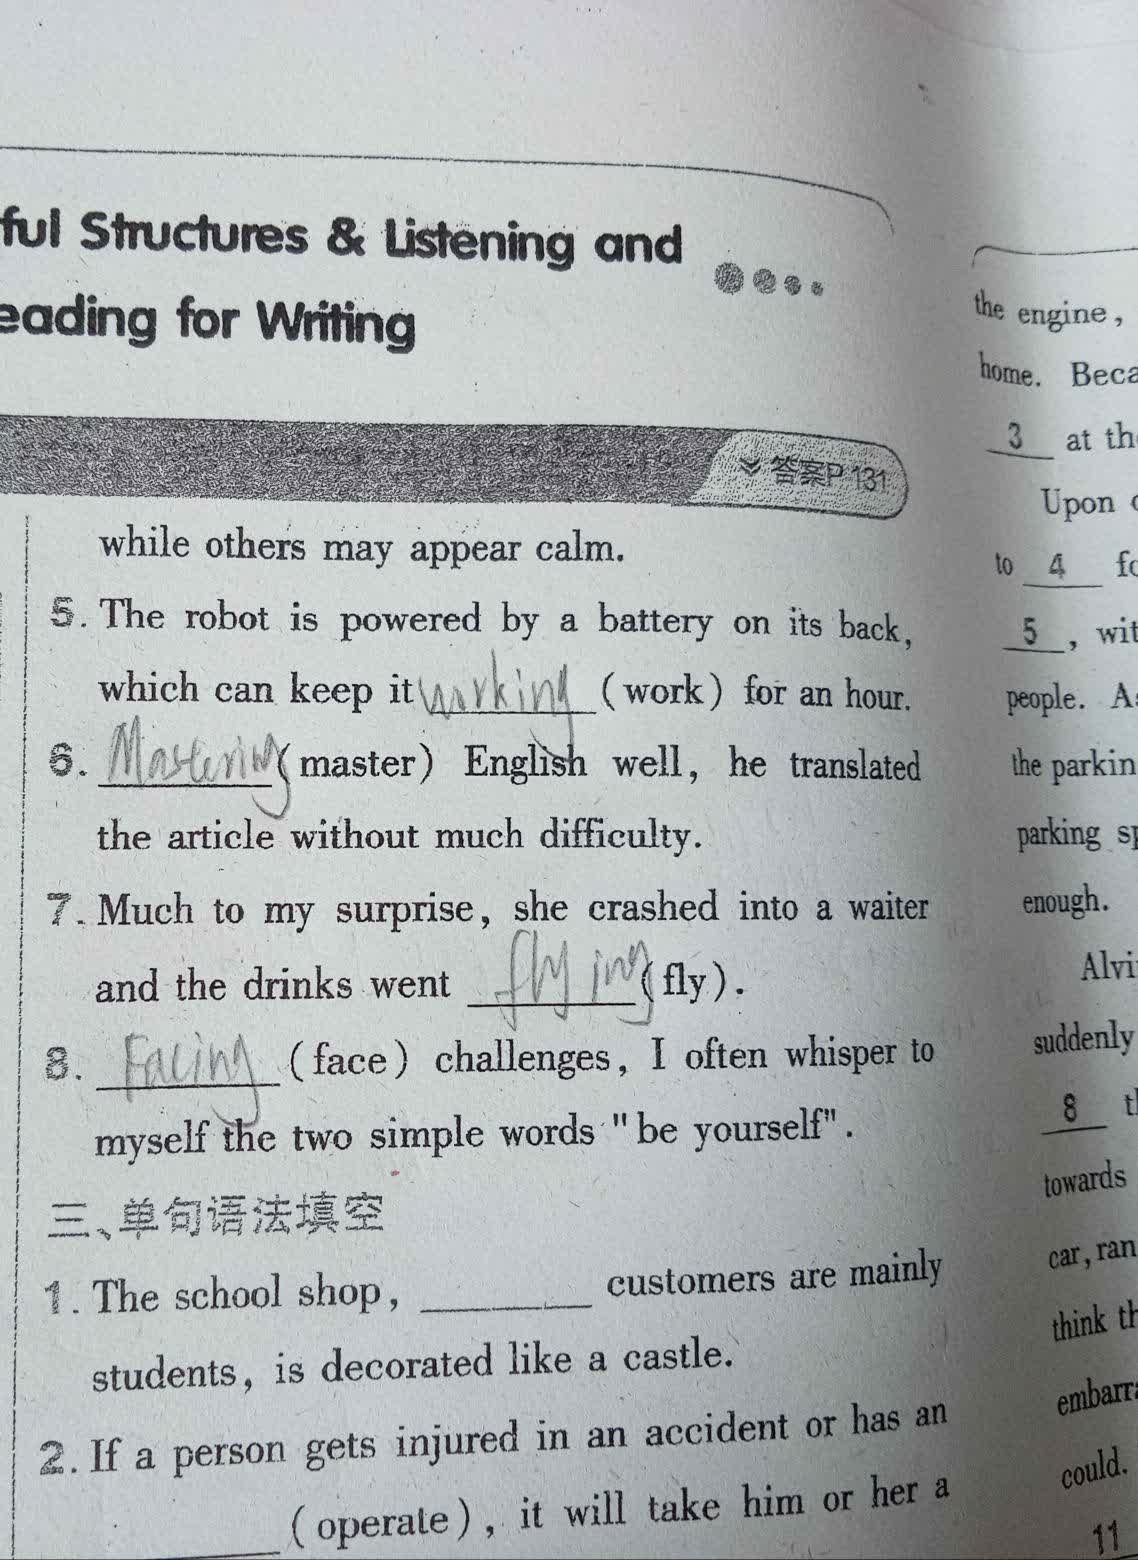 ful Structures & Listening and
eading for Writing
答案P 131
while others may appear calm.
5. The robot is powered by a battery on its back,
which can keep it working (work) for an hour.
6. Mastering (master) English well, he translated
the article without much difficulty.
7. Much to my surprise, she crashed into a waiter
and the drinks went flying (fly).
8. Facing (face) challenges, I often whisper to
myself the two simple words "be yourself".
三、单句语法填空
1. The school shop, ______ customers are mainly
students, is decorated like a castle.
2. If a person gets injured in an accident or has an
______ (operate), it will take him or her a
the engine,
home. Beca
3 at th
Upon
to 4 fo
5, wit
people. As
the parkin
parking sp
enough.
Alvi
suddenly
8 th
towards
car, ran
think th
embarra
could.
11